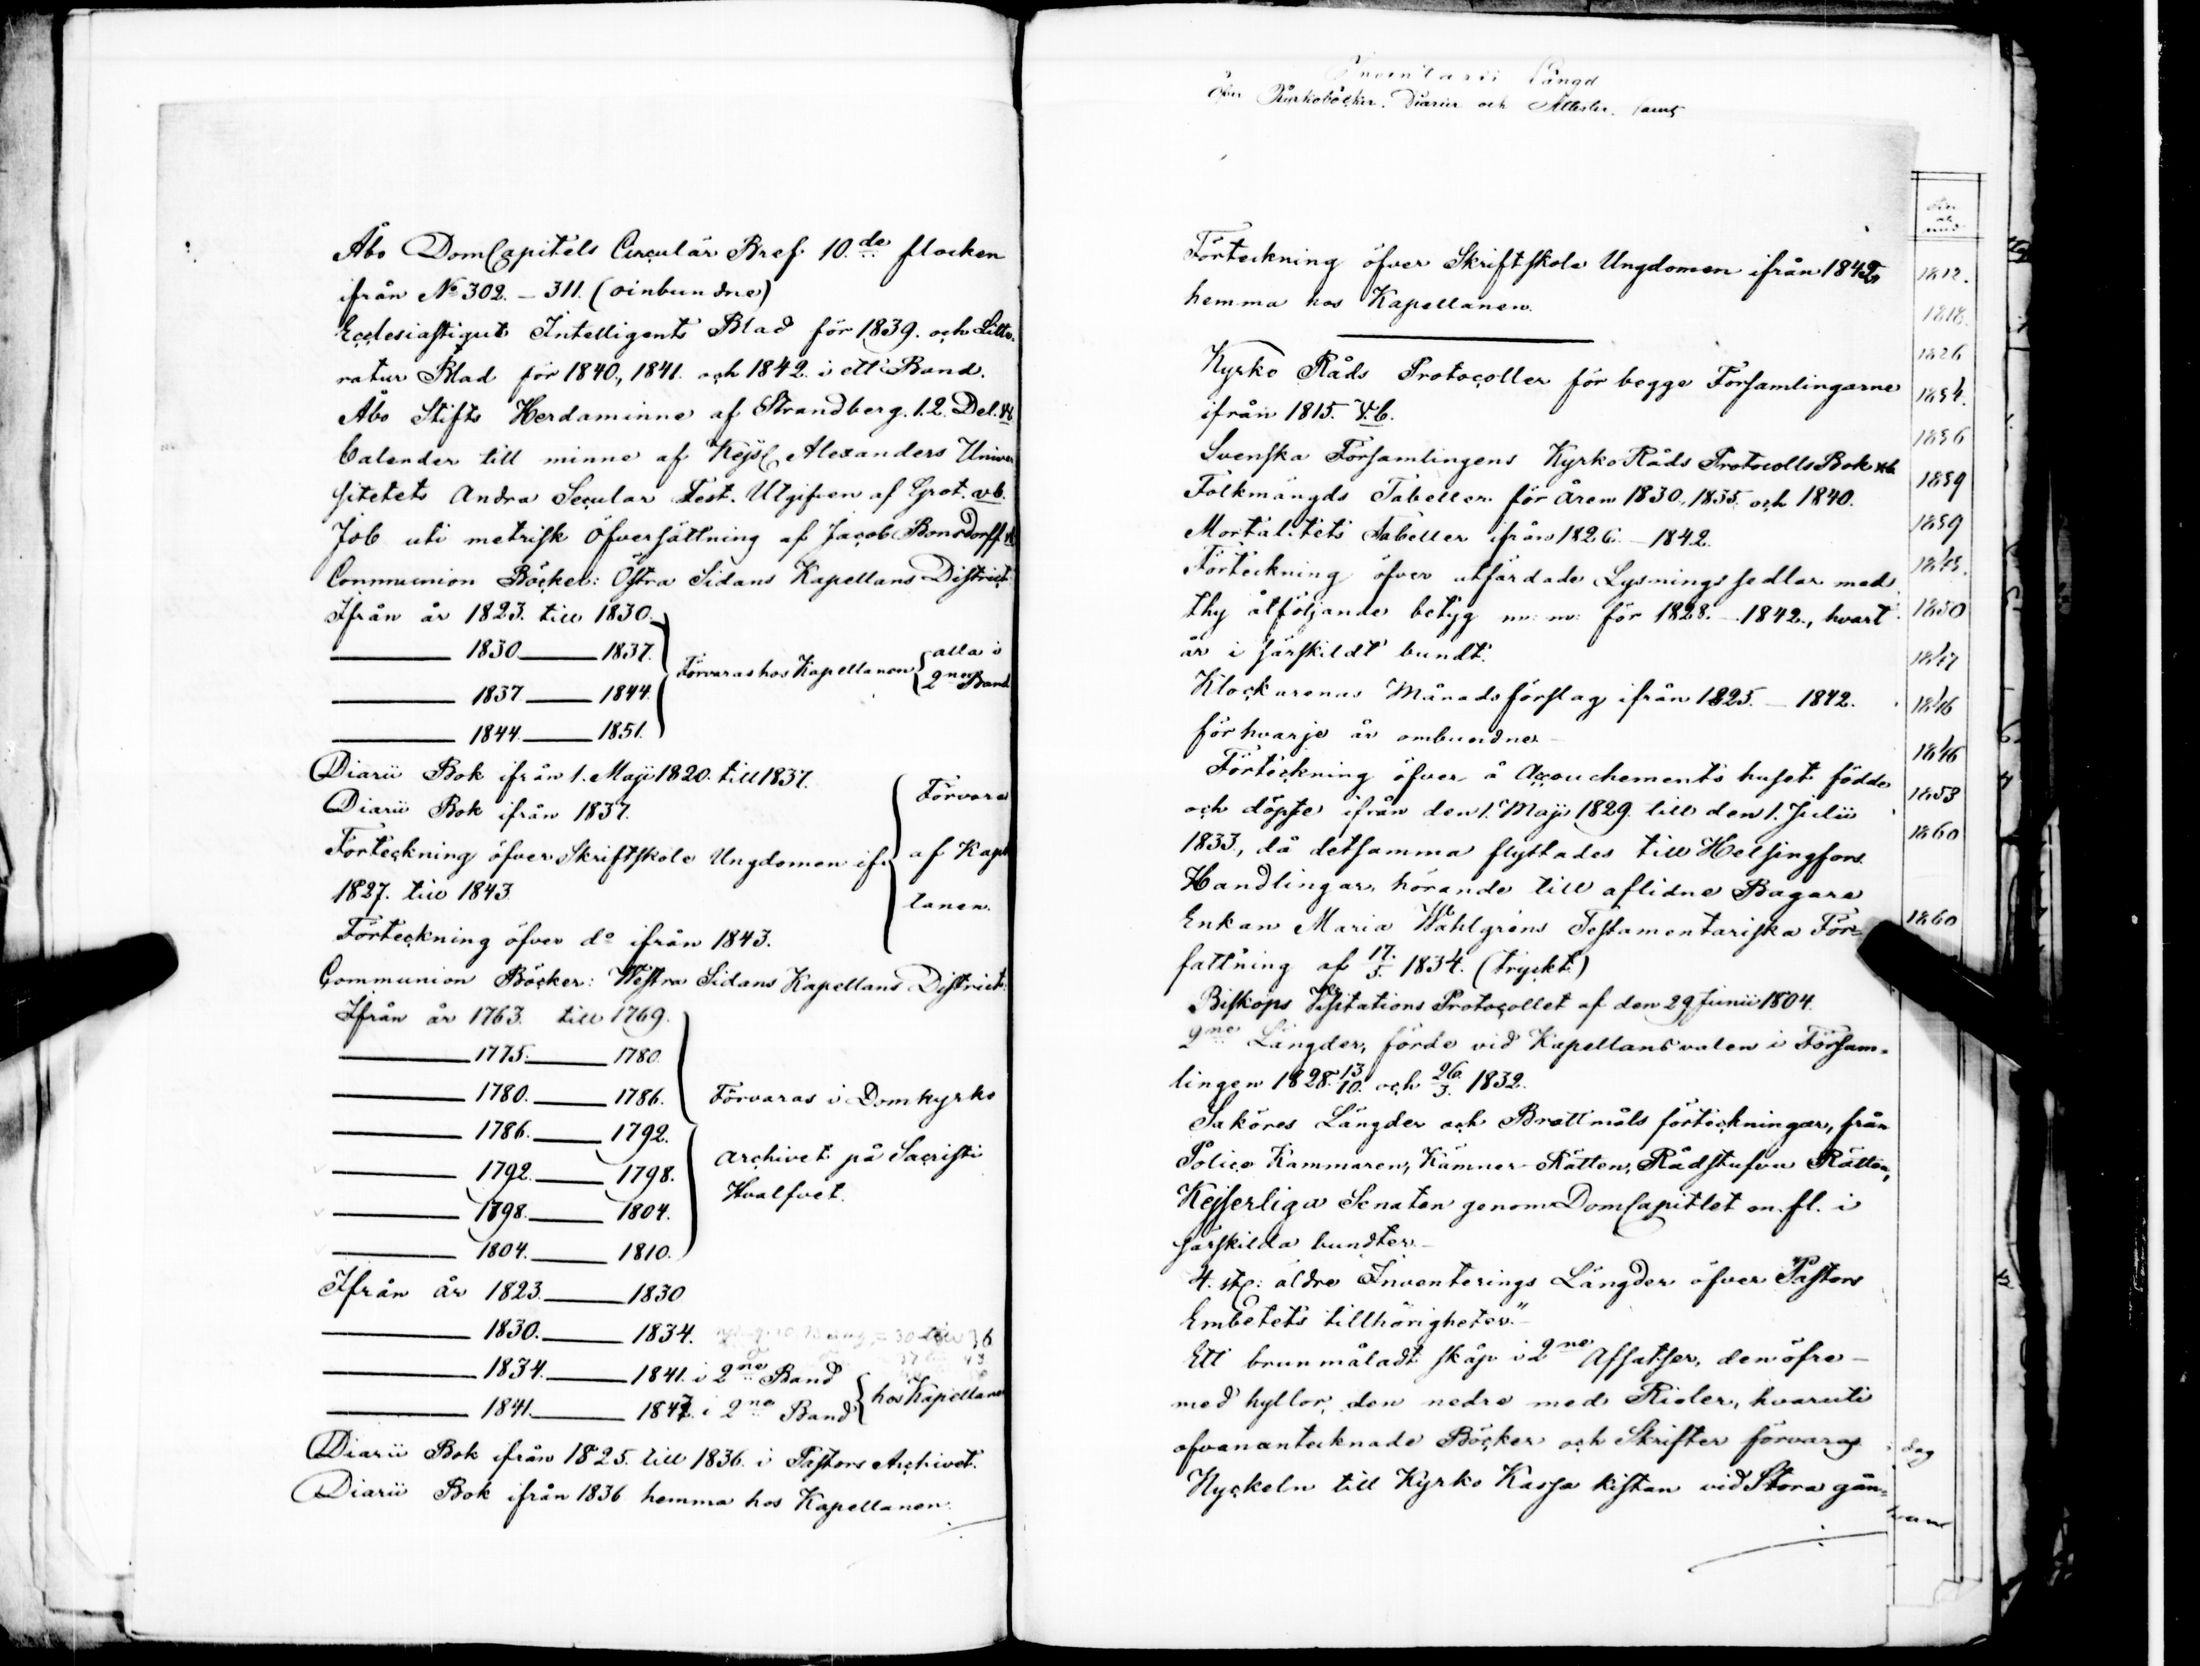 Åbo DomCapitels Circulär Bref 10.de flocken
ifrån No 302. – 311. (oinbundne)
Ecclesiastiqut Intelligents Blad för 1839. och Litte-
ratur Blad för 1840, 1841. och 1842. i ett Band.
Åbo Stifts Herdaminne af Strandberg. 1.2. Del. vb.
Calender till minne af Kejs. Alexanders Univer
sitetets Andra Secular Fest. Utgifven af Grot. vb.
Job uti metrisk Öfversättning af Jacob Bonsdorff vb
Communion Böcker: Östra Sidans Kapellans District
Ifrån år 1823. till 1830.
——— 1830 ——— 1837. Förvaras hos Kapellanen alla i
——— 1837 ——— 1844. 2ne Band
——— 1844. ——— 1851.
Diarii Bok ifrån 1. Maji 1820. till 1837.
Diarii Bok ifrån 1837. Förvara
Förteckning öfver Skriftskole Ungdomen ifr. af Kapel
1827. till 1843 lanen.
Förteckning öfver do ifrån 1843.
Communion Böcker: Westra Sidans Kapellans District:
Ifrån år 1763. till 1769.
——— 1775. ——— 1780.
——— 1780. ——— 1786. Förvaras i Domkyrko
——— 1786. ——— 1792.
——— 1792. ——— 1798. archivet på Sacristi
——— 1798. ——— 1804. Hvalfvet.
——— 1804. ——— 1810.
Ifrån år 1823. ——— 1830
——— 1830. ——— 1834.
——— 1834. ——— 1841. i 2ne Band
——— 1841. ——— 1847. i 2ne Band hos Kapellanen
Diarii Bok ifrån 1825. till 1836. i Pastors Archivet.
Diarii Bok ifrån 1836 hemma hos Kapellanen.
Inventarii Längd
öfver Kyrkoböcker, Diarier och Attester, samt
Förteckning öfver Skriftskole Ungdomen ifrån 1842,
hemma hos Kapellanen.
Kyrko Råds Protocoller för begge Församlingarne
ifrån 1815. v.b.
Svenska Församlingens Kyrko Råds Protocolls Bok vb.
Folkmängds Tabeller för åren 1830, 1835. och 1840.
Mortalitets Tabeller ifrån 1826. – 1842.
Förteckning öfver utfärdade Lysningssedlar med
thy åtföljande betyg m: m: för 1828. – 1842., hvart
år i särskildt bundt.
Klockarenas Månadsförslag ifrån 1825. – 1842.
för hvarje år ombundne –
Förteckning öfver å Accouchements huset födde
och döpte ifrån den 1. Maji 1829. till den 1. Julii
1833., då detsamma flyttades till Helsingfors.
Handlingar, hörande till aflidne Bagare
Enkan Maria Wahlgréns Testamentariska För-
fattning af 17/5. 1834. (tryckt.)
Biskops Visitations Protocollet af den 29 Junii 1804.
2ne Längder, förde vid Kapellansvalen i Försam-
lingen 1828. 13/10. och 26/3. 1832.
Saköres Längder och Brottmåls förteckningar, från
Police Kammaren, Kämners Rätten, Rådstufvu Rätten,
Kejserliga Senaten genom DomCapitlet m. fl. i
särskilda bundter. –
4. st: äldre Inventerings Längder öfver "Pastors
Embetets tillhörigheter". –
Ett brunmåladt skåp i 2ne Afsatser, den öfre –
med hyllor, den nedre med Rioler, hvaruti
ofvanantecknade Böcker och Skrifter förvaras.
Nyckeln till Kyrko Kassa kistan vid Stora gån-
1812.
1818.
1826
1834.
1836
1839
1839
1843.
1850
1847
1846
1846
1853
1860
1860
dag